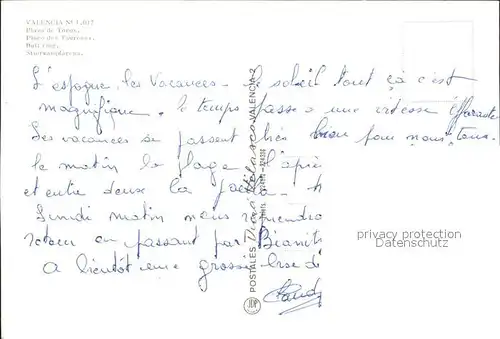 VALENCIA Nº 1.107
Plaza de Toros.
Place des Taureaux.
Bull ring.
Stierkampfarena.
L'espagne, les vacances - le soleil tout ça c'est
magnifique. le temps passe a une vitesse effarante
Les vacances se passent très bien pour nous tous.
le matin la plage l'après
et entre deux la paella -
Lundi matin nous reprendro
retour en passant par
A bientôt une grosse bise de
POSTALES VALENCIA-2
JDP
privacy protection
Datenschutz